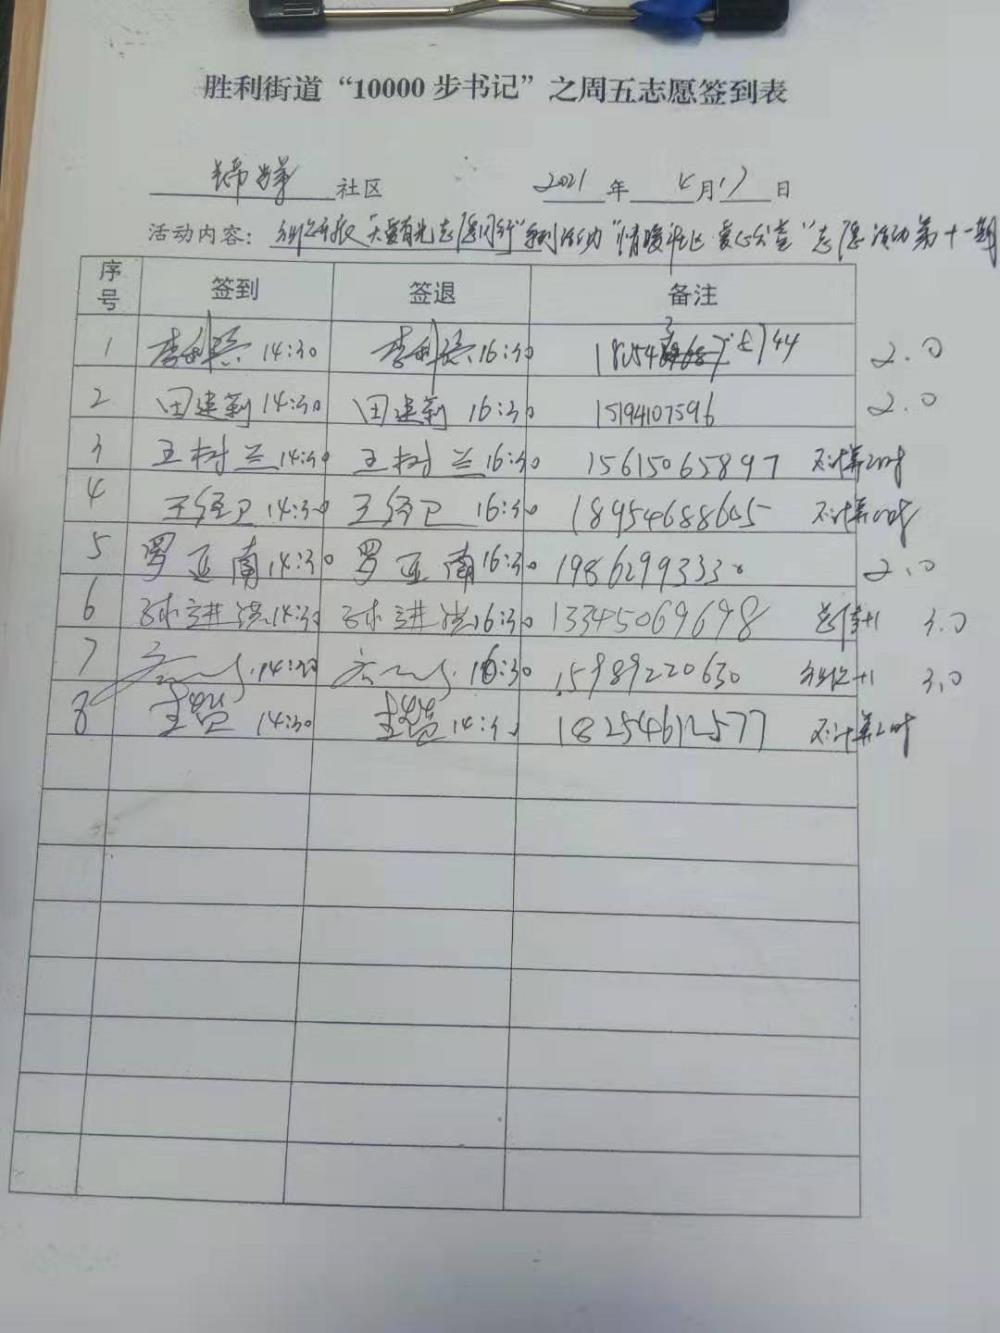 胜利街道“10000步书记”之周五志愿签到表
社区 2021年 4月17日
活动内容: 志愿同行”系列活动“情暖社区 爱心公益”志愿活动第十一期
序号 签到 签退 备注
1 李利 14:30 李利 16:30 18254 744 2.0
2 田建莉 14:30 田建莉 16:30 15194107596 2.0
3 王树兰 14:30 王树兰 16:30 15615065897 不计算时
4 王经卫 14:30 王经卫 16:30 18954688605 不计算时
5 罗亚南 14:30 罗亚南 16:30 19862993330 2.0
6 孙进 14:30 孙进 16:30 13345069698 +1 3.0
7 14:30 16:30 15989220630 +1 3.0
8 14:30 14:30 18254612577 不计算时